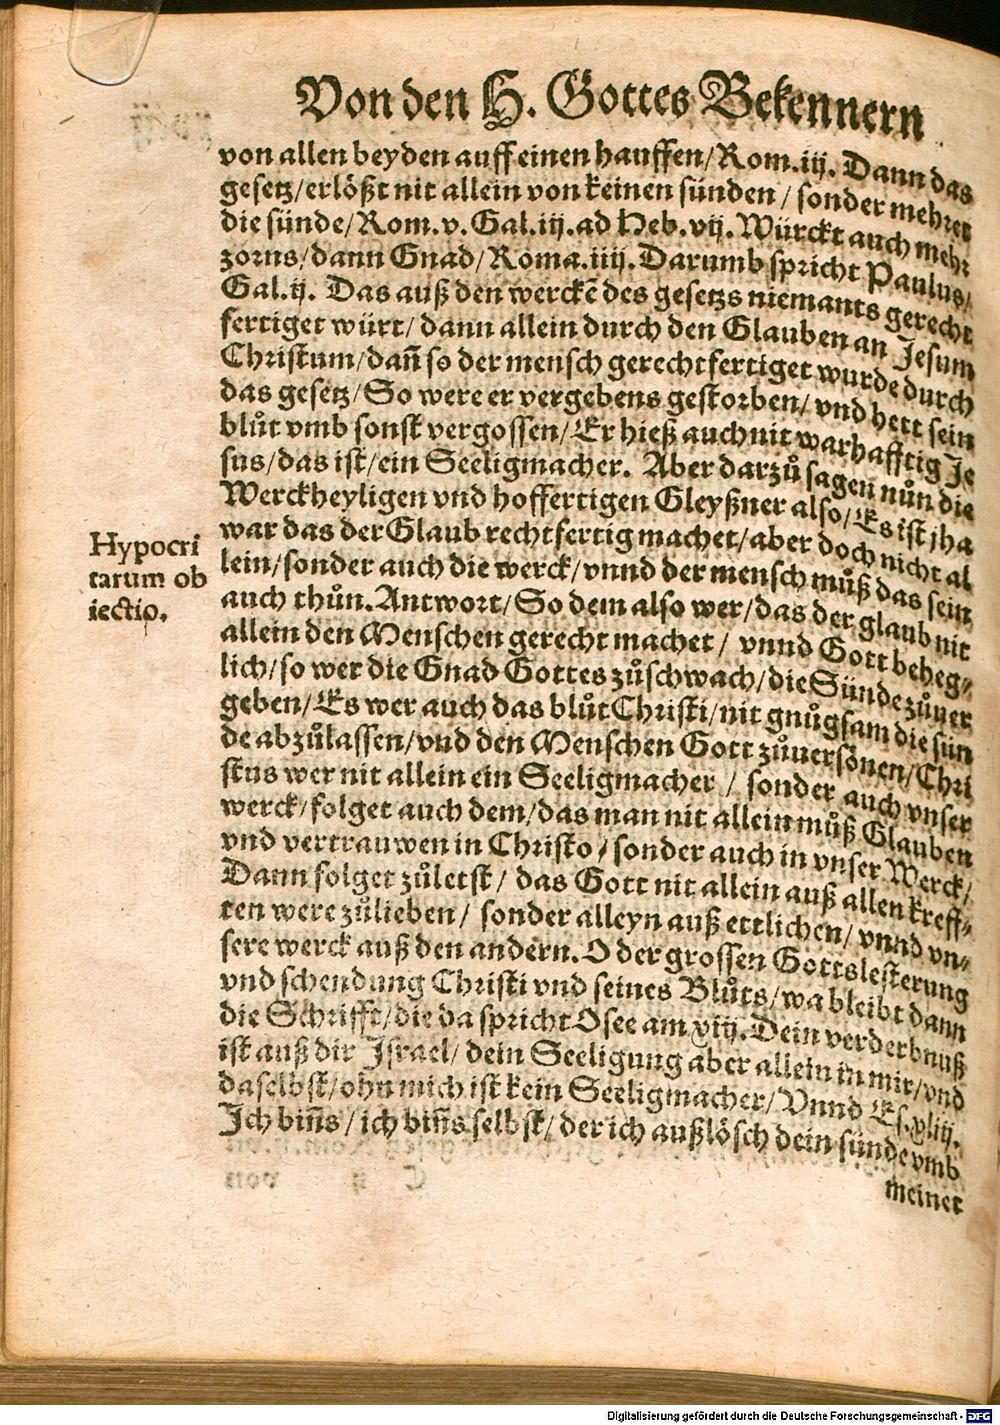 Von den H. Gottes Bekennern
von allen beyden auff einen hauffen/Rom.iij. Dann das
gesetz/erlößt nit allein von keinen sünden/ sonder mehret
die sünde/Rom.v. Gal.iij.ad Heb.vij. Würckt auch mehr
zorns/dann Gnad/Roma.iiij. Darumb spricht Paulus/
Gal.ij. Das auß den werckē des gesetzs niemants gerecht
fertiget würt/ dann allein durch den Glauben an Jesum
Christum/dañ so der mensch gerechtfertiget wurde durch
das gesetz/So were er vergebens gestorben/vnd hett sein
blůt vmb sonst vergossen/Er hieß auch nit warhafftig Je
sus/das ist/ein Seeligmacher. Aber darzů sagen nůn die
Werckheyligen vnd hoffertigen Gleyßner also/Es ist jha
war das der Glaub rechtfertig machet/aber doch nicht al
lein/sonder auch die werck/vnnd der mensch můß das sein
auch thůn.Antwort/So dem also wer/das der glaub nit
allein den Menschen gerecht machet/ vnnd Gott beheg⸗
lich/so wer die Gnad Gottes zůschwach/die Sünde zůuer
geben/Es wer auch das blůt Christi/nit gnůgsam die sün
de abzůlassen/vnd den Menschen Gott zůuersönen/Chri
stus wer nit allein ein Seeligmacher/ sonder auch vnser
werck/folget auch dem/das man nit allein můß Glauben
vnd vertrauwen in Christo/sonder auch in vnser Werck/
Dann folget zůletst/ das Gott nit allein auß allen kreff⸗
ten were zůlieben/ sonder alleyn auß ettlichen/vnnd vn⸗
sere werck auß den andern.O der grossen Gottslesterung
vnd schendung Christi vnd seines Blůts/wa bleibt dann
die Schrifft/die da spricht Osee am xiij. Dein verderbnuß
ist auß dir Israel/ dein Seeligung aber allein in mir/vnd
daselbst/ohn mich ist kein Seeligmacher/Vnnd Es.xliij.
Ich biñs/ich biñs selbst/der ich außlösch dein sünde vmb
meinet
Hypocri
tarum ob
iectio.
Digitalisierung gefördert durch die Deutsche Forschungsgemeinschaft - DFG